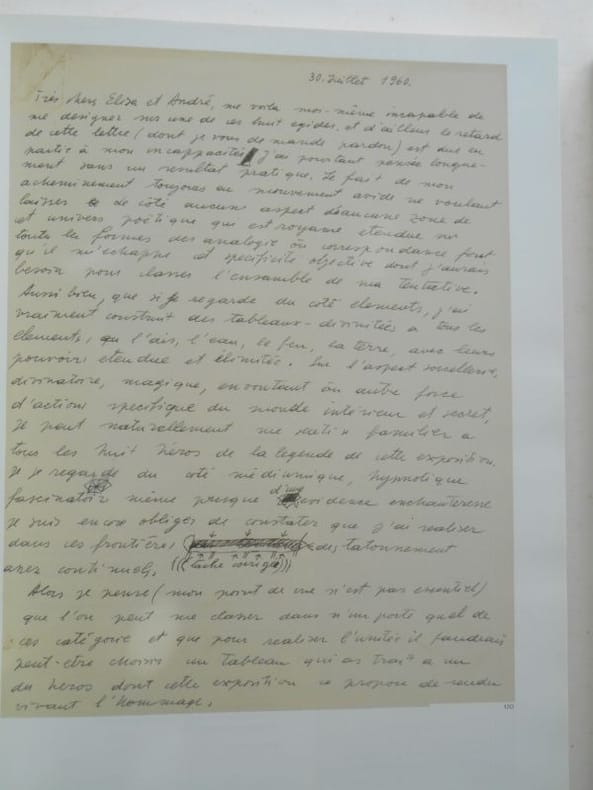 30. Juillet 1960.
Très chers Elisa et André, me voila moi-même incapable de
me designer sur une de ces huit egides. et d'ailleurs le retard
de cette lettre (dont je vous demande pardon) est due en
partie à mon incappacitée. J'ai pourtant pensée longue-
ment sans un resultat pratique. Le fait de mon
acheminement toujours au mouvement avide ne voulant
laisser de côté aucuns aspect d'aucune zone de
et univers poëtique qui est royame etendue sur
toute les formes des analogie ou correspondance font
qu'il m'échappe specificité objective dont j'aurais
besoin pour classer l'ensamble de ma tentative.
Aussi bien, que si je regarde du coté elements, j'ai
vraiment construit des tableaux-divinitées a tous les
elements, que l'air, l'eau, le feu, la terre, avec leurs
pouvoirs etendue et ilimitée. Sur l'aspect sorcellerie,
divinatoire, magique, envoutant ou autre force
d'actions specifique du monde intérieur et secret,
Je peut naturellement me sentir familier a
tous les huit héros de la legende de cette exposition.
Si je regarde du coté médiumique, hypnotique
fascinatoire même presque d'une evidence enchanteresse
je suis encore obligés de constater que j'ai realiser
dans ces frontières des tatonnement
assez continuels. (((tache corrigée)))
Alors je pense (mon point de vue n'est pas essentiel)
que l'on peut me classer dans n'importe quel de
ces catégorie et que pour realiser l'unitée il faudrais
peut-être choisir un tableau qui as trait a un
des heros dont cette exposition se propose de rendre
vivant l'hommage.
130